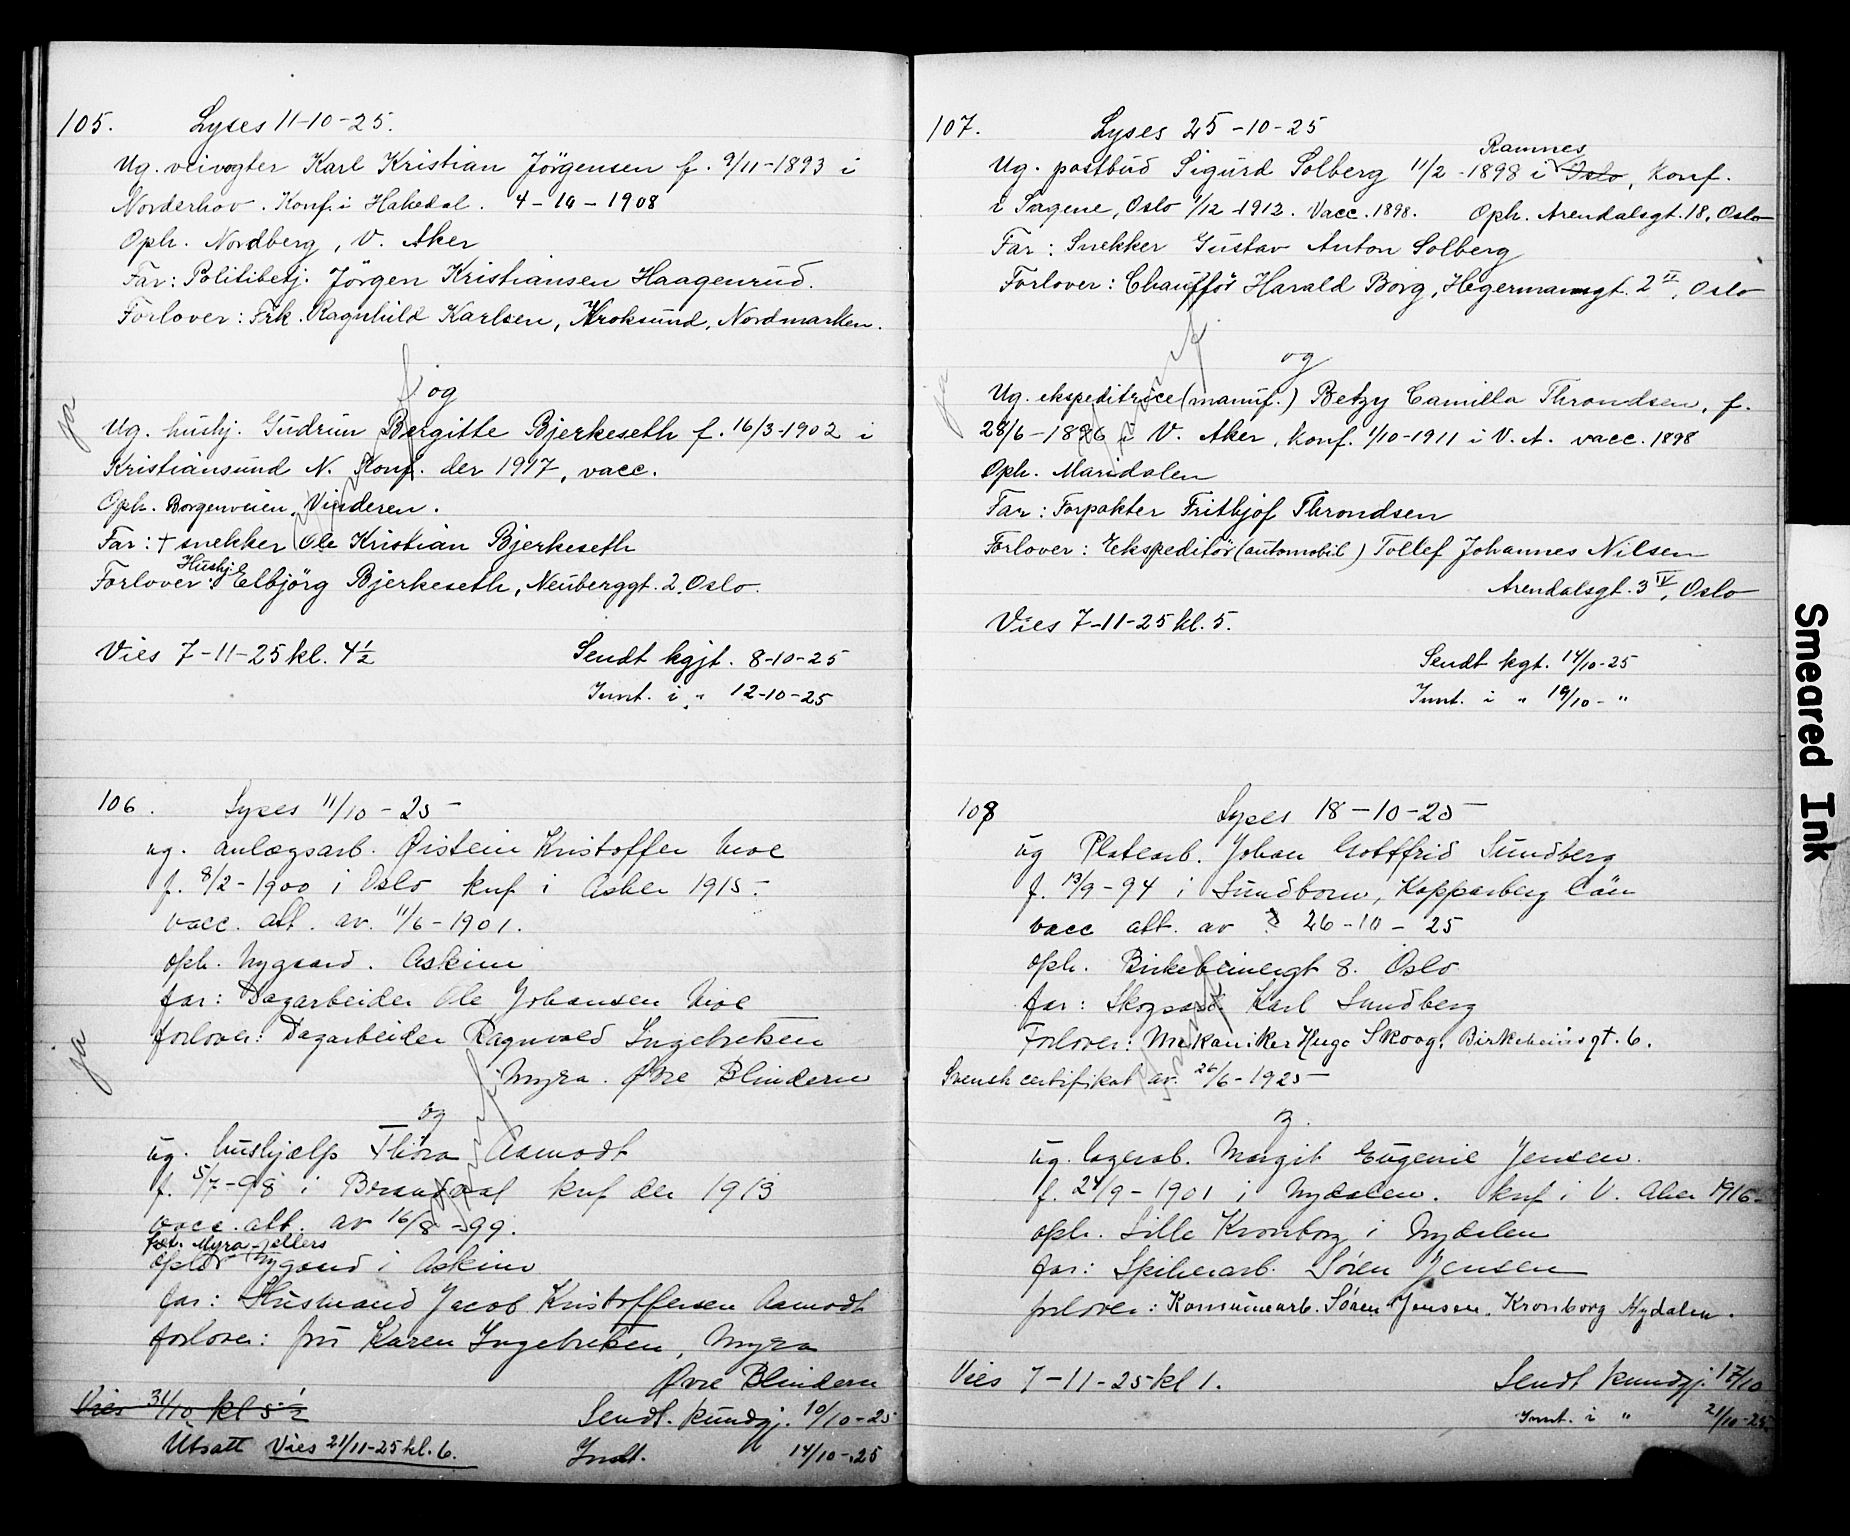 105. Lyses 11-10-25.
Ug. veivogter Karl Kristian Jörgensen f. 9/11-1893 i
Norderhov. Konf. i Hakedal. 4-10-1908
Oph. Nordberg, V. Aker
Far: Politibetj. Jörgen Kristiansen Haagenrud.
Forlover: Frk. Ragnhild Karlsen, Kroksund, Nordmarken.
og
ja
Ug. hushj. Gudrun Bergitte Bjerkeseth f. 16/3-1902 i
Kristiansund N. Konf. der 1917, vacc.
Oph. Borgenveien, Vinderen.
Far: + snekker Ole Kristian Bjerkeseth
Hushj.
Forlover: Elbjörg Bjerkeseth, Neuberggt. 2, Oslo.
Vies 7-11-25 kl. 4 1/2 Sendt kgjt. 8-10-25
Innt. i " 12-10-25
106. Lyses 11/10-25
ug. anlægsarb. Øistein Kristoffer Moe
f. 8/2-1900 i Oslo knf i Asker 1915.
vacc. att. av. 11/6-1901.
oph. Nygaard. Askim
far: Dagarbeider Ole Johansen Moe
forlover: Dagarbeider Ragnvald Ingebretsen
Myra. Øvre Blindern
ja
og
ug. hushjælp Thora Aamodt
f. 5/7-98 i knf der 1913
vacc. att. av 16/8-99.
Myra jellers
Nygaard i Askim
far: Husmand Jacob Kristoffersen Aamodt
forlover: fru Karen Ingebretsen, Myra
Øvre Blindern
Vies 31/10 kl 5 1/2 Sendt. kundgj. 10/10-25
Utsatt Vies 21/11-25 kl. 6. Indt. 14/10-25
107. Lyses 25-10-25
Ramnes
Ug. postbud Sigurd Solberg 11/2-1898 i Oslo, Konf.
i Sagene, Oslo 1/12-1912. Vacc. 1898. Oph. Arendalsgt. 18, Oslo
Far: Snekker Gustav Anton Solberg
Forlover: Chauffør Harald Borg, Hegermannsgt. 2 II, Oslo
og
ja
Ug. ekspeditrice (manuf.) Betzy Camilla Throndsen, f.
28/6-1896 i V. Aker, Konf. 1/10-1911 i V. A. vacc. 1898
Oph. Maridalen
Far: Forpakter Frithjof Throndsen
Forlover: Ekspeditör (automobil) Tollef Johannes Nilsen
Arendalsgt. 3 IV, Oslo
Vies 7-11-25 kl. 5.
Sendt kgt. 14/10-25
Innt. i " 19/10- "
108 Lyses 18-10-25
ug Platearb. Johan Gottfrid Sundberg
f. 13/9-94 i Sundborn, Kopparberg län
vacc att. av 26-10-25
oph. Birkebeinergt 8. Oslo
far: Skogsarb. Karl Sundberg
Forlover: Mekaniker Hugo Skoog, Birkebeinsgt. 6.
Svensk certifikat av. 26/6-1925
og.
ug. lagerarb. Margit Eugenie Jensen.
f. 24/9-1901 i Nydalen. knf i V. Aker 1916.
oph. Lille Kronborg i Nydalen
far: Spikerarb. Sören Jensen
forlover: Konsumearb. Sören Jensen, Kronborg Nydalen.
Vies 7-11-25 kl 1. Sendt kundgj. 17/10
Innt. i " 21/10-25.
Smeared Ink